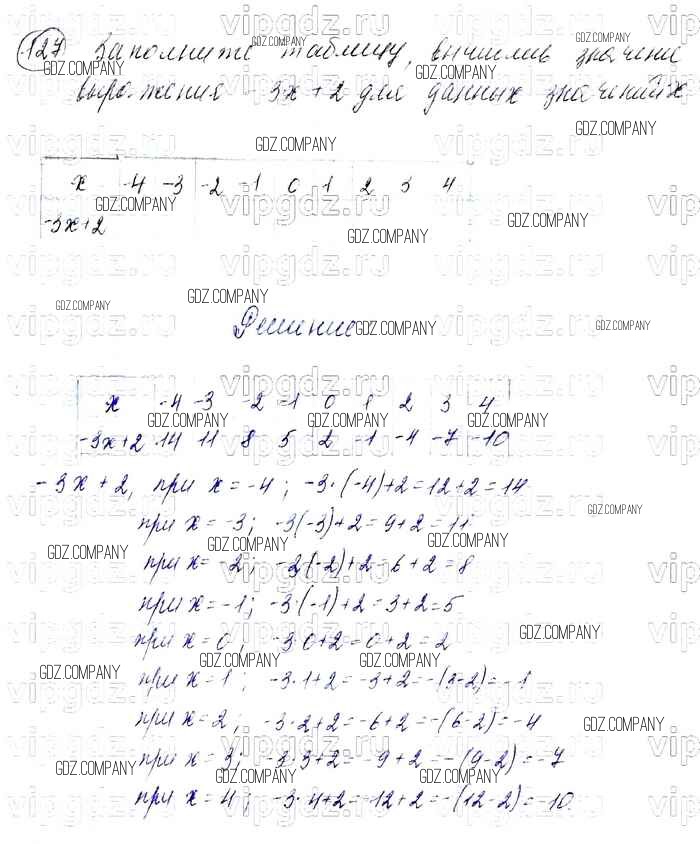 127 Заполните таблицу, вычислив значение
выражения -3x+2 для данных значений x
x -4 -3 -2 -1 0 1 2 3 4
-3x+2
Решение
x -4 -3 -2 -1 0 1 2 3 4
-3x+2 14 11 8 5 2 -1 -4 -7 -10
-3x+2, при x=-4; -3·(-4)+2=12+2=14
при x=-3; -3(-3)+2=9+2=11
при x=-2; -3(-2)+2=6+2=8
при x=-1; -3·(-1)+2=3+2=5
при x=0, -3·0+2=0+2=2
при x=1; -3·1+2=-3+2=-(3-2)=-1
при x=2; -3·2+2=-6+2=-(6-2)=-4
при x=3; -3·3+2=-9+2=-(9-2)=-7
при x=4; -3·4+2=-12+2=-(12-2)=-10
GDZ.COMPANY
vipgdz.ru